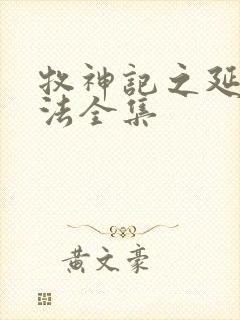 牧神记之延
法全集
黄文豪